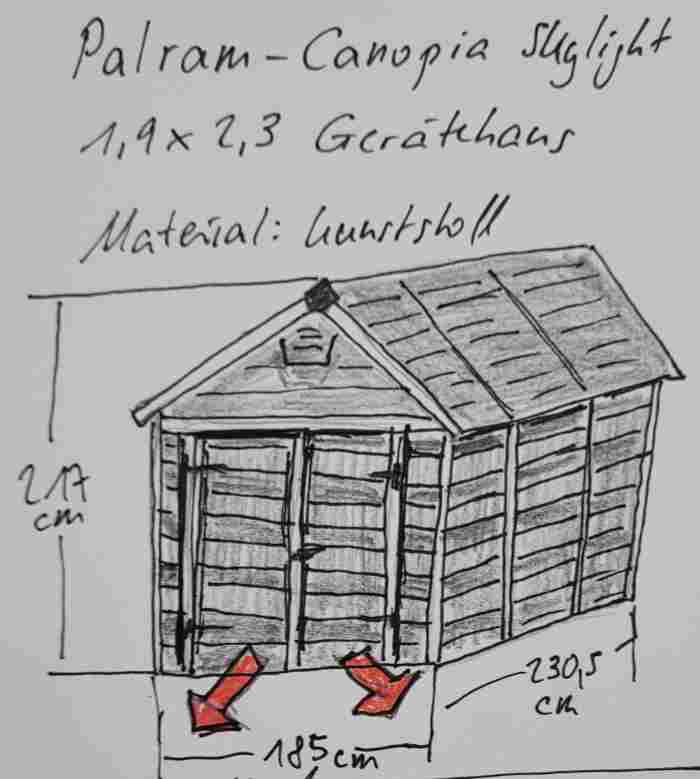 Palram-Canopia Skylight
1,9 x 2,3 Gerätehaus
Material: Kunststoff
217
cm
230,5
cm
185cm